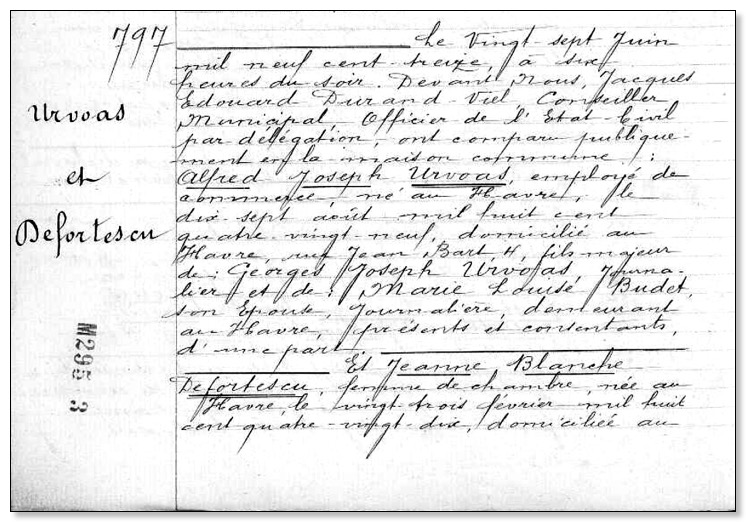 797
Urvoas
et
Defortescu
M295 3
Le Vingt-sept Juin
mil neuf cent treize, à six
heures du soir. Devant Nous, Jacques
Edouard Durand-Viel, Conseiller
Municipal, Officier de l'Etat-Civil
par délégation, ont comparu publique-
ment en la maison commune :
Alfred Joseph Urvoas, employé de
commerce, né au Havre, le
dix-sept août mil huit cent
quatre-vingt-neuf, domicilié au
Havre, rue Jean Bart, 4, fils majeur
de : Georges Joseph Urvoas, Journa-
lier et de : Marie Louise Budet,
son Epouse, Journalière, demeurant
au Havre, présents et consentants,
d'une part
Et Jeanne Blanche
Defortescu, femme de chambre, née au
Havre, le vingt-trois février mil huit
cent quatre-vingt-dix, domiciliée au